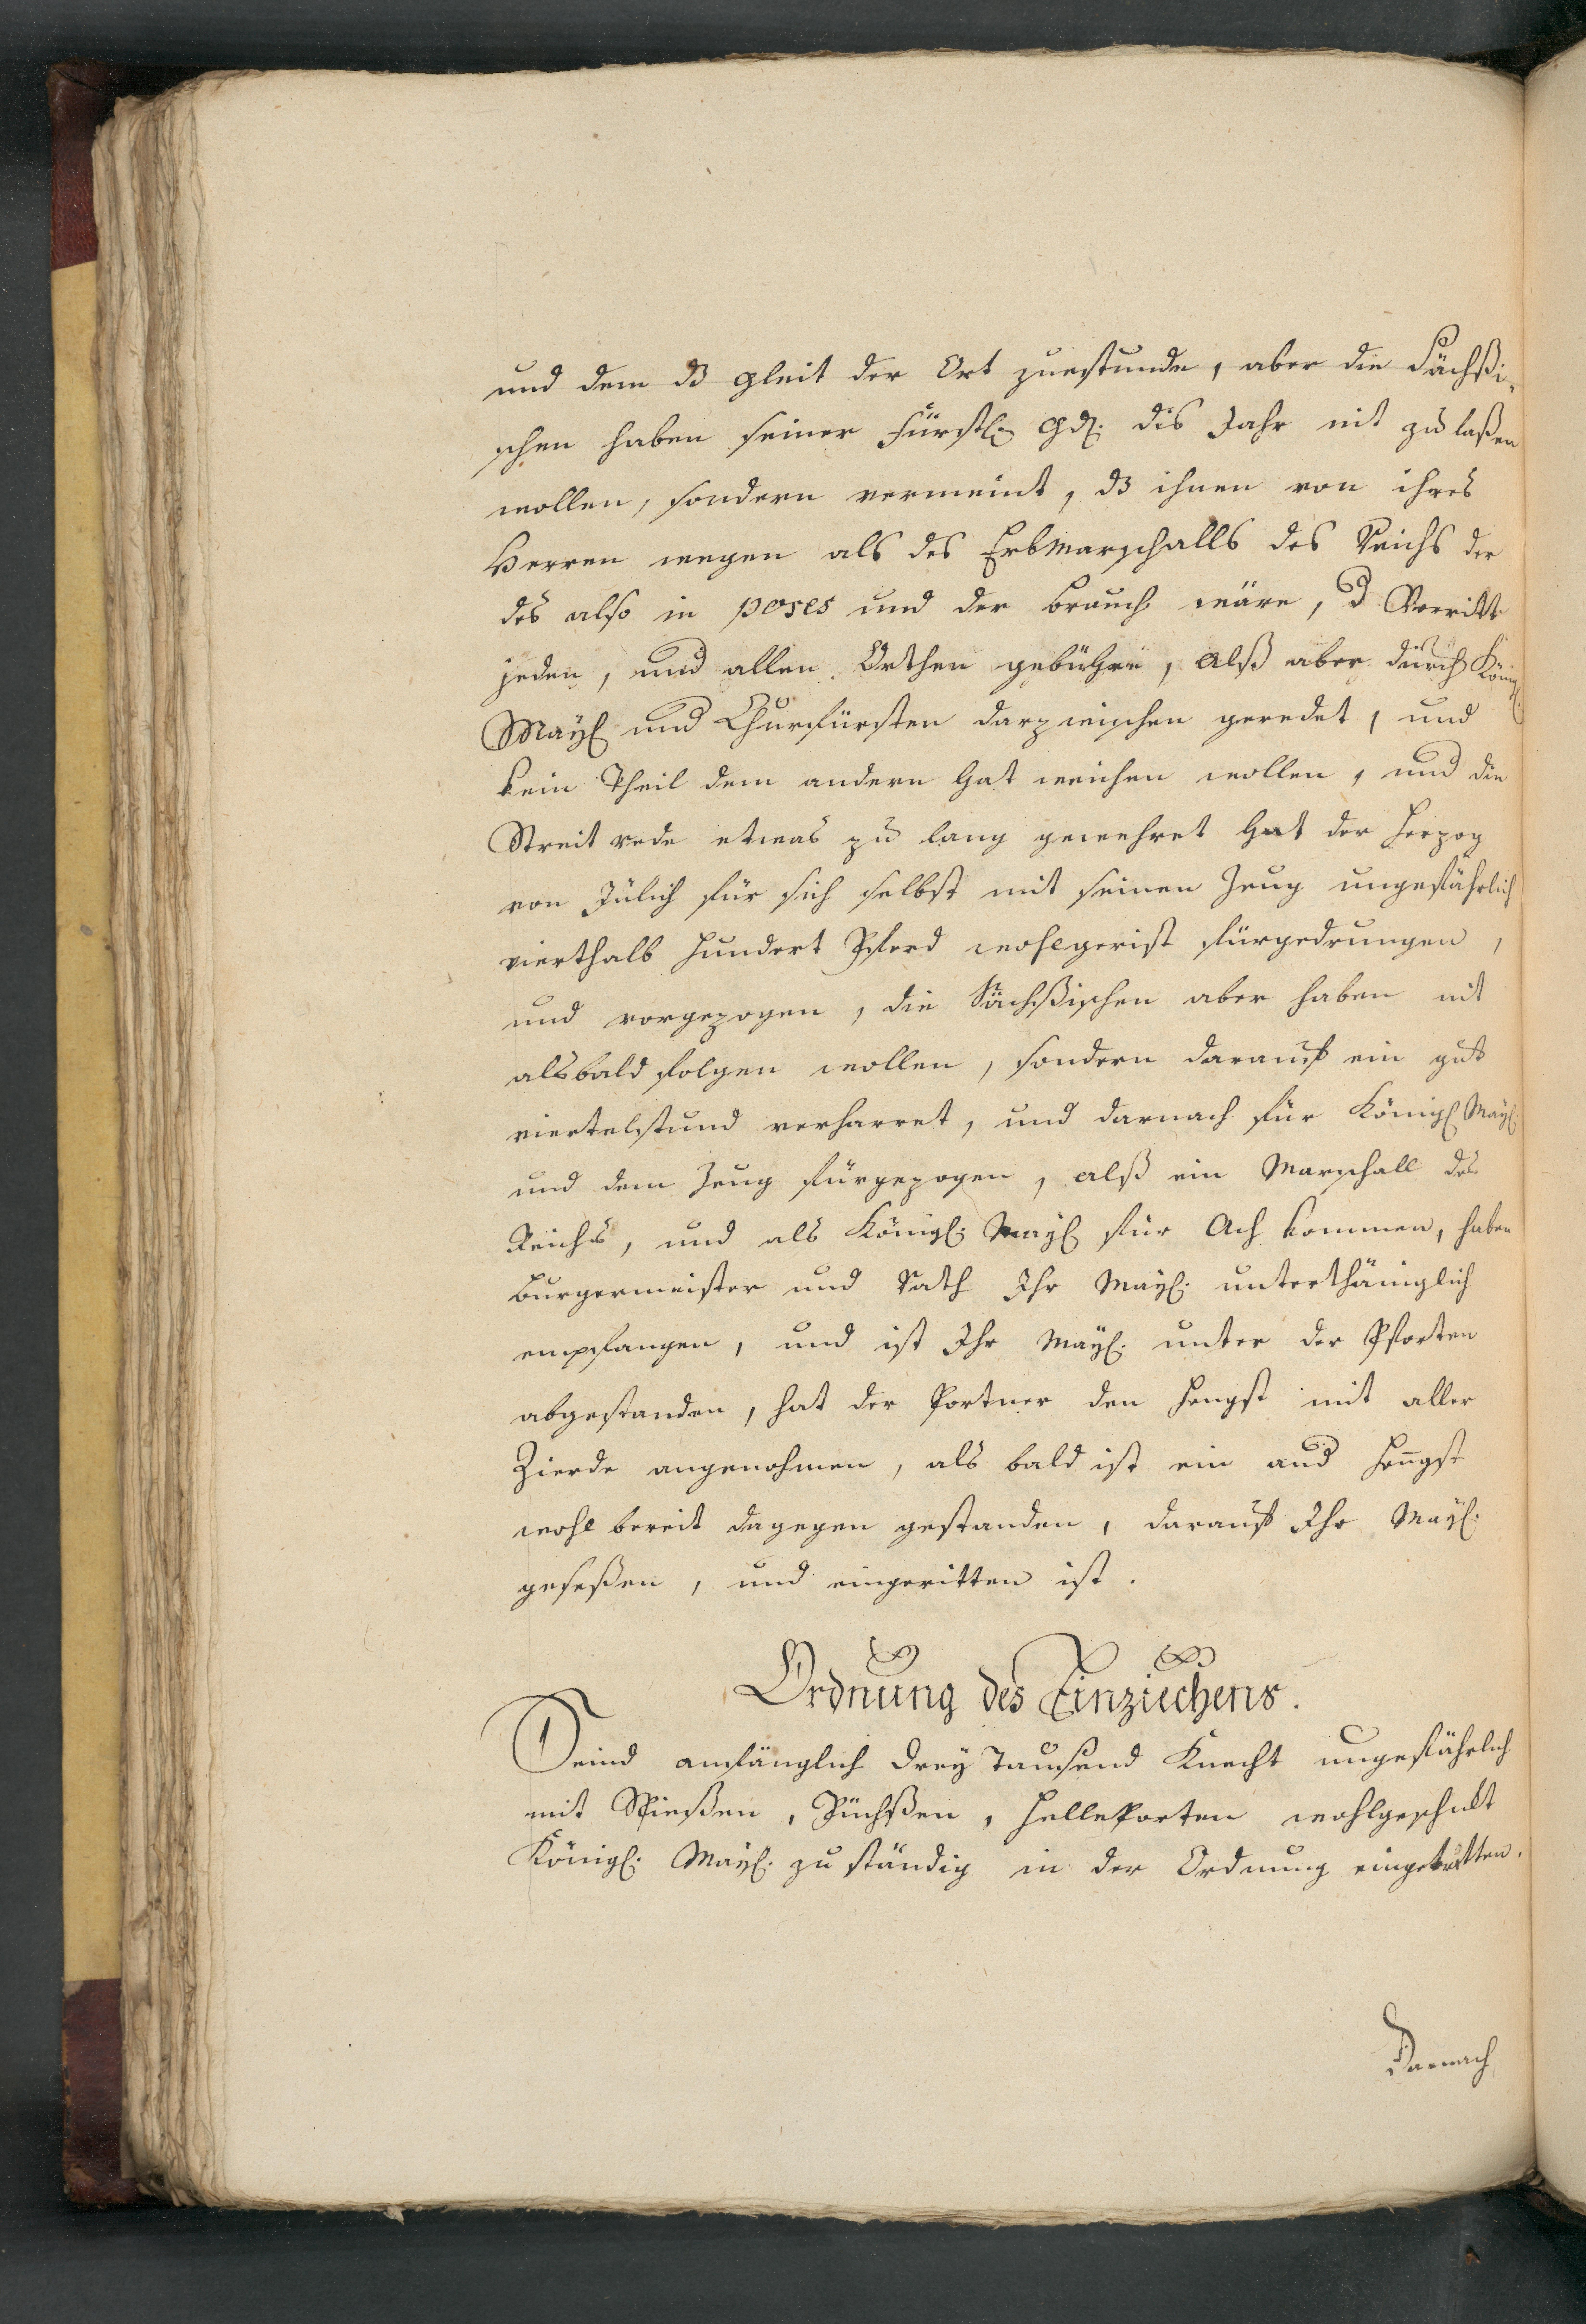 und dem dß gleit der Ort zuestunde, aber die Sächßi-
schen haben seiner Fürstl: Gd: dis Jahr nit zu laßen
wollen, sondern vermeint, dß ihnen von ihres
Herren wegen als des Erbmarschalls des Reichs der
des also in poses und der brauch wäre, d Vorritt
jeden, und allen Orthen gebühre, alß aber durch Königl:
Mayl und Churfürsten darzwischen geredet, und
kein Theil dem andern hat weichen wollen, und die
Streit rede etwas zu lang gewehret hat der Herzog
von Jülich für sich selbst mit seinen Zeug ungefährlich
vierthalb hundert Pferd wohlgerist fürgedrungen,
und vorgezogen, die Sächßischen aber haben nit
alsbald folgen wollen, sondern darauf ein gut
viertelstund verharret, und darnach für Königl Mayl:
und dem Zeug fürgezogen, alß ein Marschall des
Reichs, und als Königl: Mayl für Ach kommen, haben
Burgermeister und Rath Ihr Mayl: unterthäniglich
empfangen, und ist Ihr Mayl: unter der Pforten
abgestanden, hat der Portner den Hengst mit aller
Zierde angenohmen, als bald ist ein and Hengst
wohl bereit dagegen gestanden, darauf Ihr Mayl:
geseßen, und eingeritten ist.
Ordnung des Einziechens.
Seind anfänglich drey Tausend Knecht ungefährlich
mit Spießen, Püchßen, Helleporten wohlgeschickt
Königl: Mayl: zu ständig in der Ordnung eingetretten.
Darnach